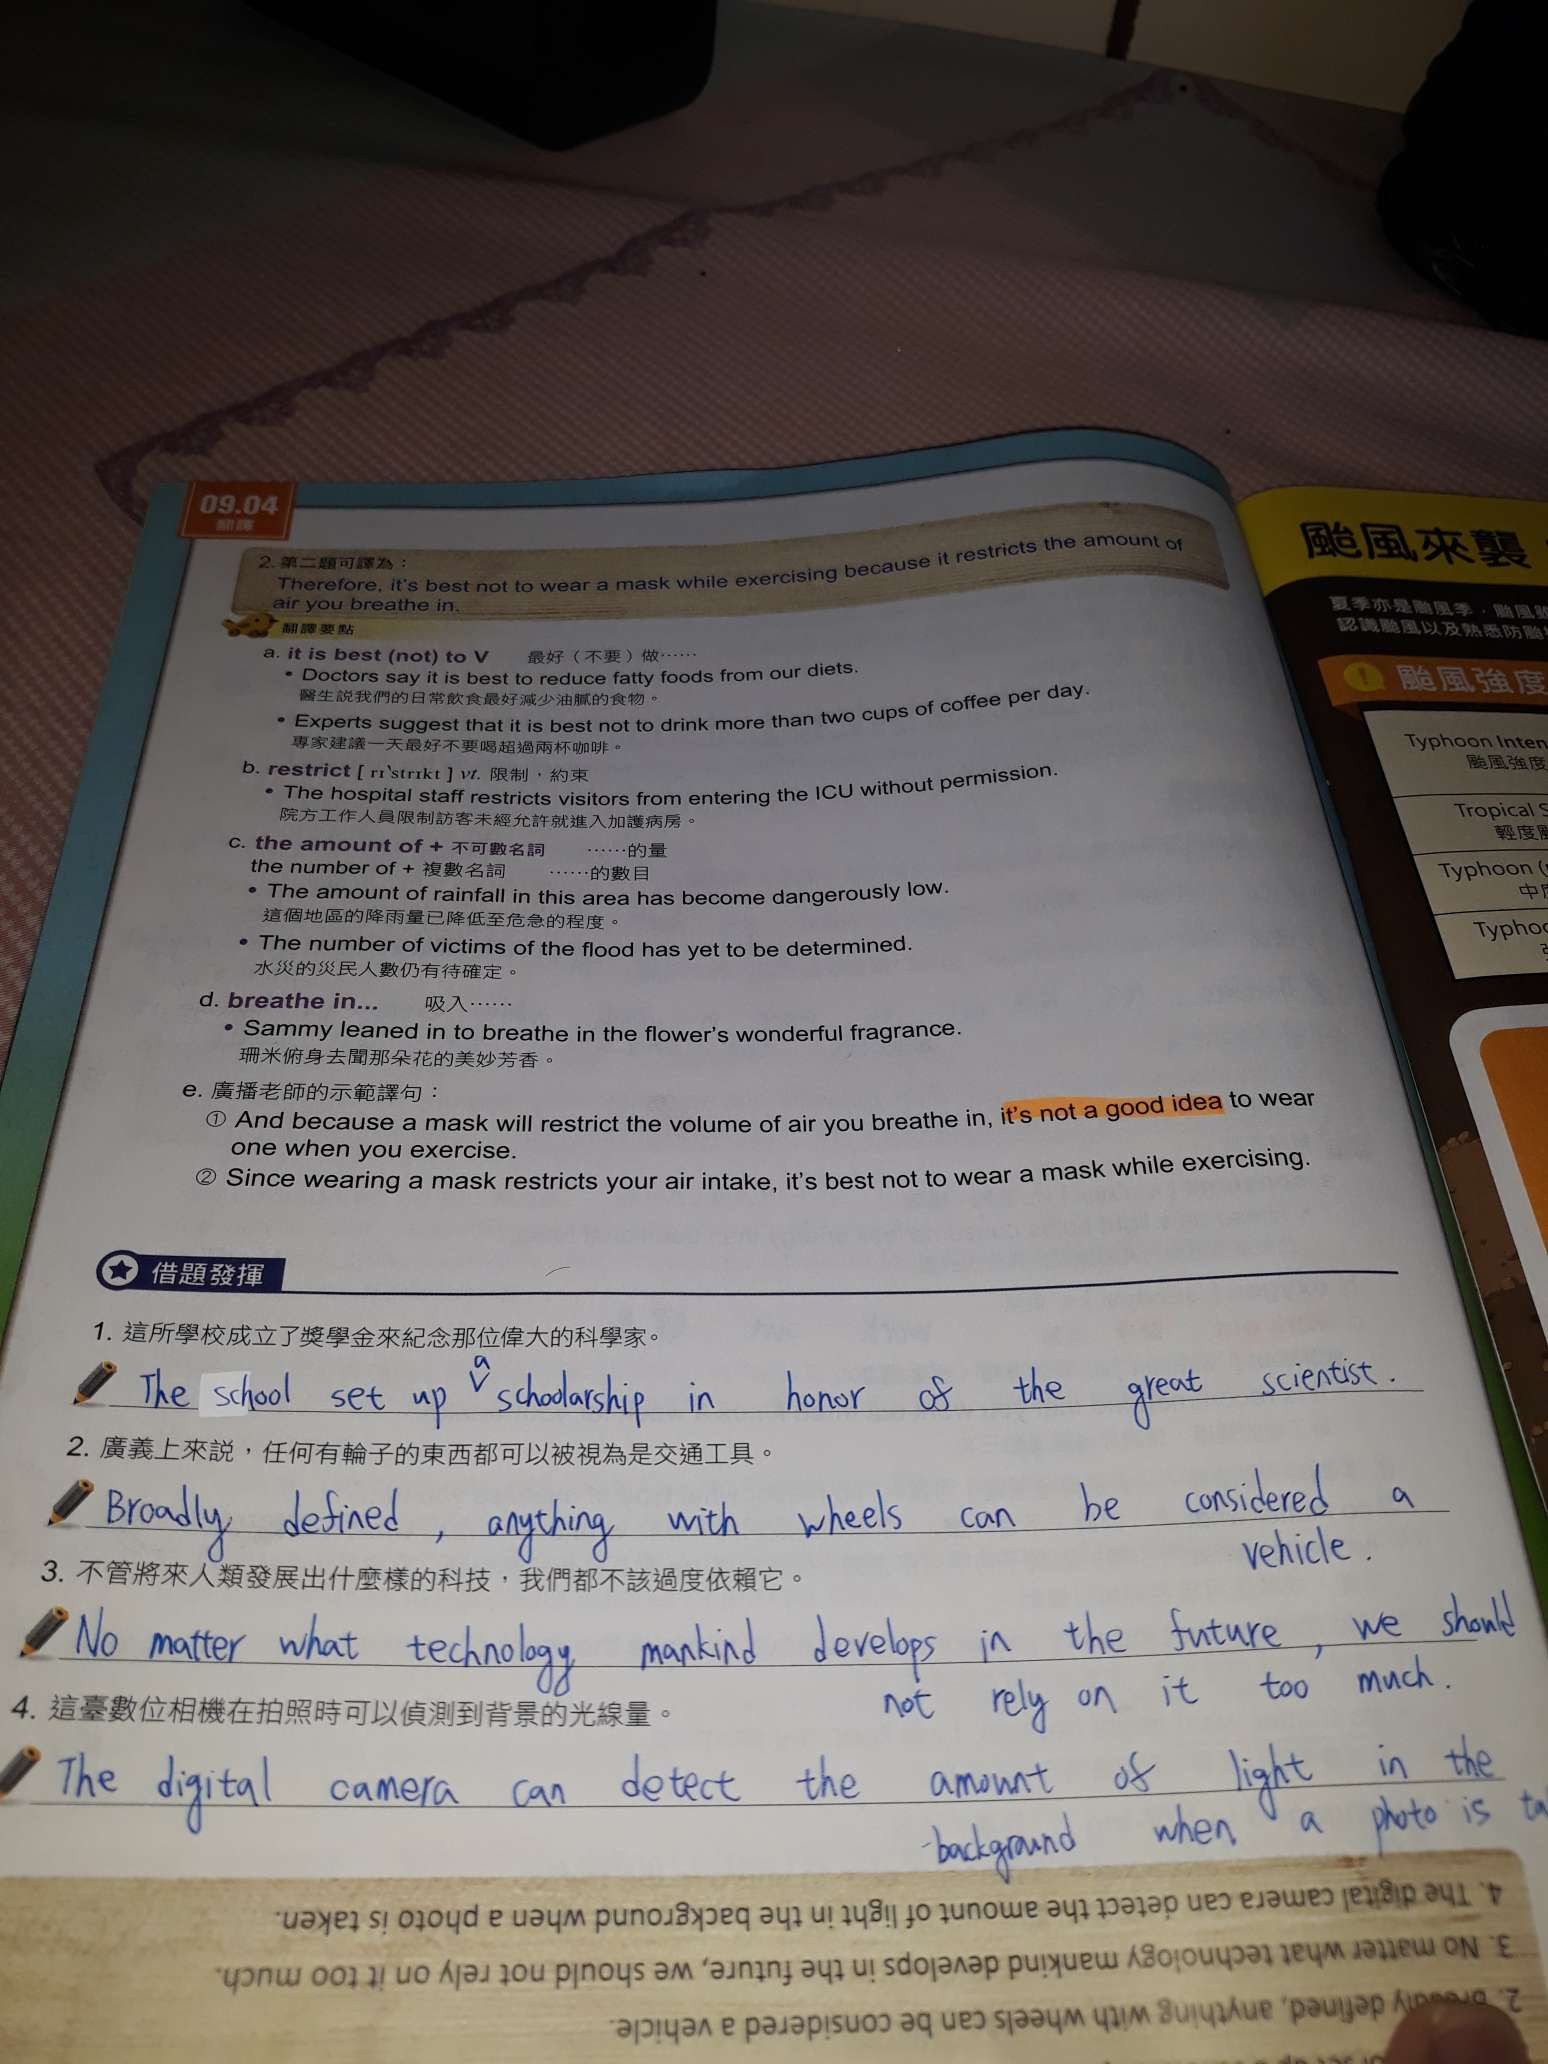 09.04
翻譯
2. 第二題可譯為：
Therefore, it's best not to wear a mask while exercising because it restricts the amount of
air you breathe in.
翻譯要點
a. it is best (not) to V 最好（不要）做……
• Doctors say it is best to reduce fatty foods from our diets.
醫生說我們的日常飲食最好減少油膩的食物。
• Experts suggest that it is best not to drink more than two cups of coffee per day.
專家建議一天最好不要喝超過兩杯咖啡。
b. restrict [ rɪˋstrɪkt ] vt. 限制，約束
• The hospital staff restricts visitors from entering the ICU without permission.
院方工作人員限制訪客未經允許就進入加護病房。
c. the amount of + 不可數名詞 ……的量
the number of + 複數名詞 ……的數目
• The amount of rainfall in this area has become dangerously low.
這個地區的降雨量已降低至危急的程度。
• The number of victims of the flood has yet to be determined.
水災的災民人數仍有待確定。
d. breathe in... 吸入……
• Sammy leaned in to breathe in the flower's wonderful fragrance.
珊米俯身去聞那朵花的美妙芳香。
e. 廣播老師的示範譯句：
① And because a mask will restrict the volume of air you breathe in, it's not a good idea to wear
one when you exercise.
② Since wearing a mask restricts your air intake, it's best not to wear a mask while exercising.
借題發揮
1. 這所學校成立了獎學金來紀念那位偉大的科學家。
The school set up a schoolarship in honor of the great scientist.
2. 廣義上來說，任何有輪子的東西都可以被視為是交通工具。
Broadly defined, anything with wheels can be considered a
vehicle.
3. 不管將來人類發展出什麼樣的科技，我們都不該過度依賴它。
No matter what technology mankind develops in the future, we should
not rely on it too much.
4. 這臺數位相機在拍照時可以偵測到背景的光線量。
The digital camera can detect the amount of light in the
background when a photo is ta
4. The digital camera can detect the amount of light in the background when a photo is taken.
3. No matter what technology mankind develops in the future, we should not rely on it too much.
2. Broadly defined, anything with wheels can be considered a vehicle.
颱風來襲
夏季亦是颱風季，颱風
認識颱風以及熟悉防颱
颱風強度
Typhoon Inten
颱風強度
Tropical S
輕度
Typhoon (
中
Typhoo